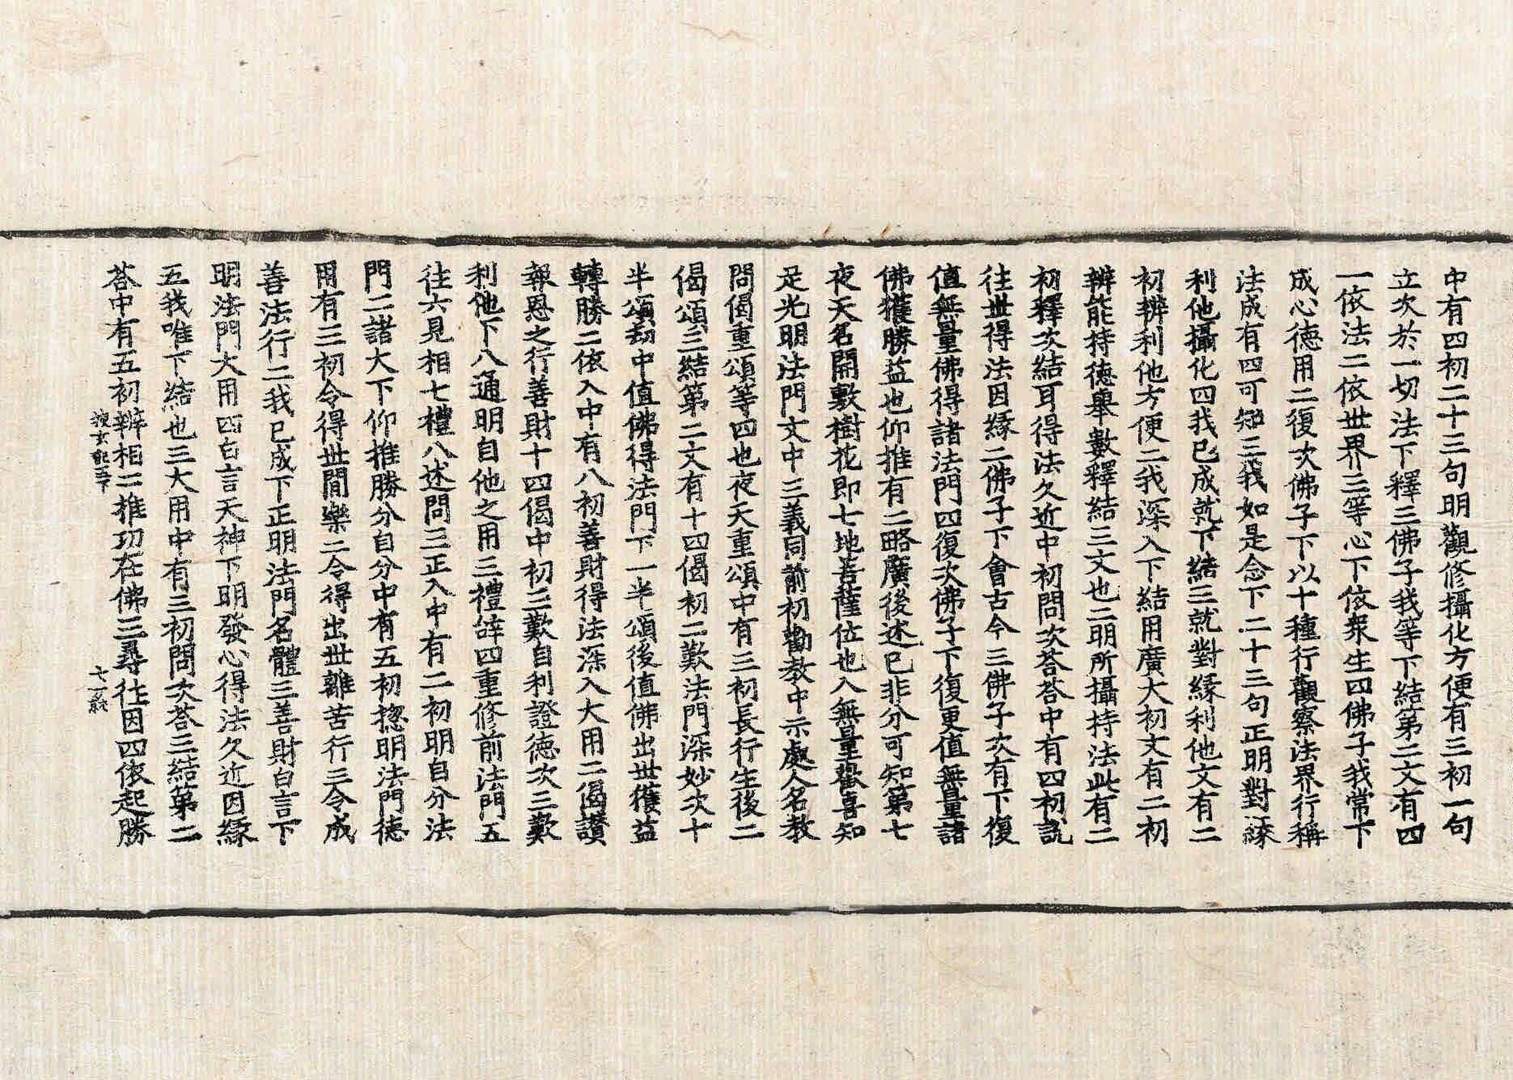 中有四初二十三句明觀修攝化方便有三初一句
立次於一切法下釋三佛子我等下結第二文有四
一依法二依世界三等心下依衆生四佛子我常下
成心德用二復次佛子下以十種行觀察法界行稱
法成有四可知三我如是念下二十三句正明對緣
利他攝化四我已成就下結三就對緣利他文有二
初辨利他方便二我深入下結用廣大初文有二初
辨能持德舉數釋結三文也二明所攝持法此有二
初釋次結耳得法久近中初問次荅荅中有四初說
往世得法因緣二佛子下會古今三佛子次有下復
值無量佛得諸法門四復次佛子下復更值無量諸
佛獲勝益也仰推有二略廣後述已非分可知第七
夜天名開敷樹花即七地菩薩位也入無量歡喜知
足光明法門文中三義同前初勸教中示處人名教
問偈重頌等四也夜天重頌中有三初長行生後二
偈頌三結第二文有十四偈初二歎法門深妙次十
半頌劫中值佛得法門下一半頌後值佛出世獲益
轉勝二依入中有八初善財得法深入大用二偈讃
報恩之行善財十四偈中初三歎自利證德次三歎
利他下八通明自他之用三禮辞四重修前法門五
往六見相七禮八述問三正入中有二初明自分法
門二諸大下仰推勝分自分中有五初揔明法門德
用有三初令得世間樂二令得出世離苦行三令成
善法行二我已成下正明法門名體三善財白言下
明法門大用四白言天神下明發心得法久近因緣
五我唯下結也三大用中有三初問次荅三結第二
荅中有五初辨相二推功在佛三尋往因四依起勝
搜玄記五下
七紙